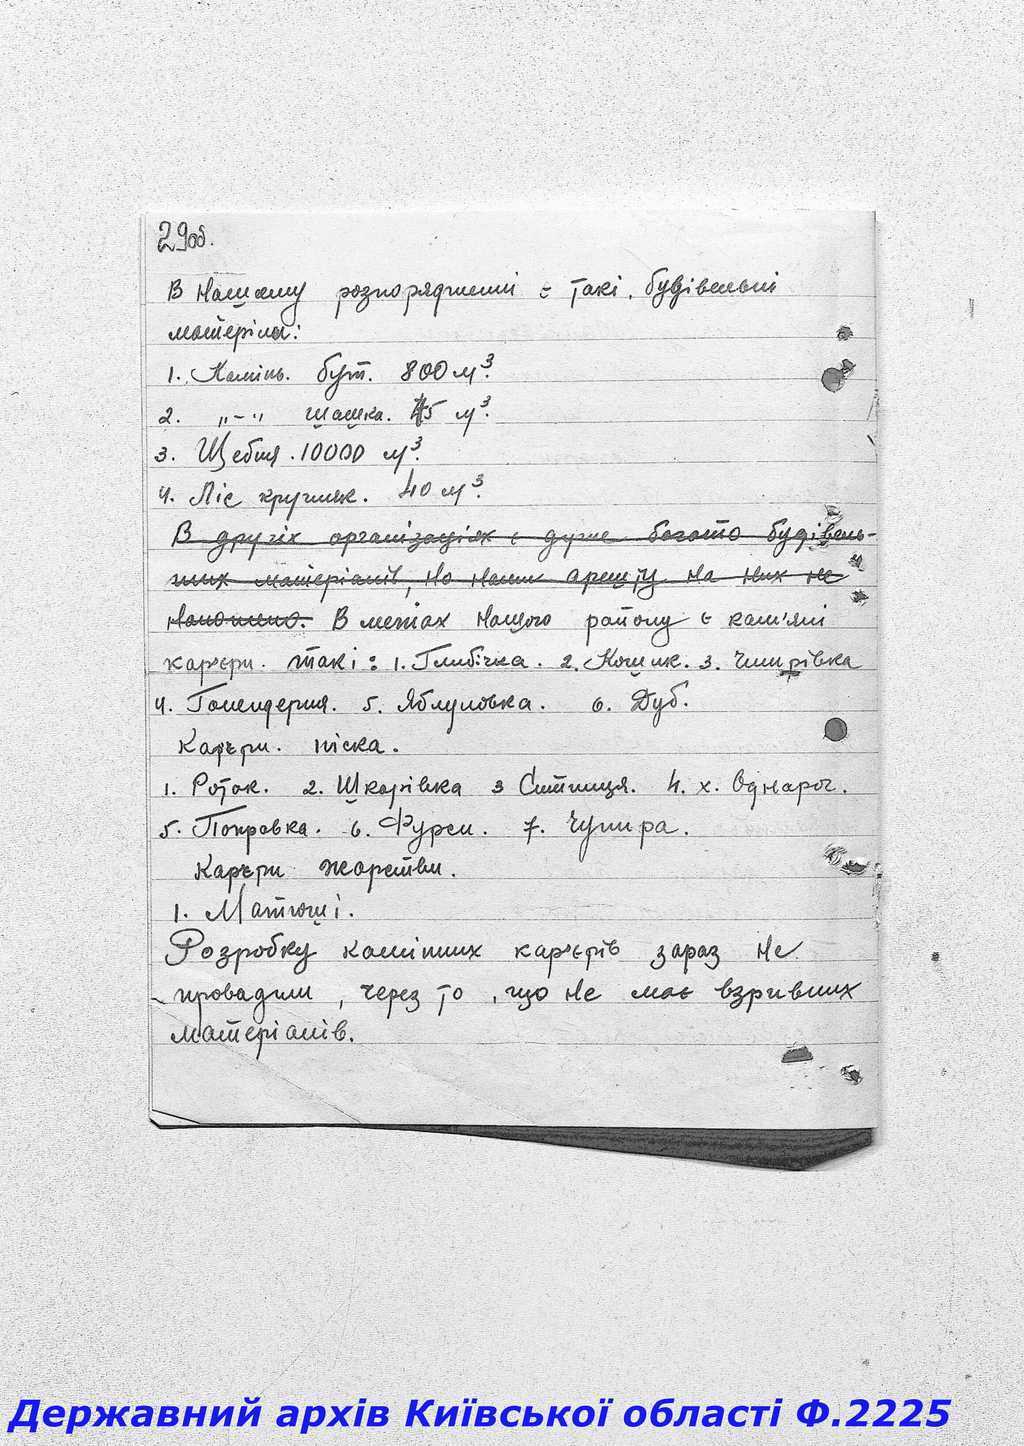 29об.
В нашому розпорядженні є такі будівельні
матеріли:
1. Камінь. бут. 800 м³.
2. „-" шашка. 45 м³.
3. Щебня. 10000 м³.
4. Ліс кругляк. 40 м³.
В других організаціях є дуже богато будівель-
них матеріалів, но нами арешту на них не
наложено. В межах нашого району є кам'яні
кар'єри. такі: 1. Глибічка. 2. Кошик. 3. Чмирівка
4. Гонендерня. 5. Яблуновка. 6. Дуб.
Кар'єри. піска.
1. Роток. 2. Шкарівка 3 Ситниця. 4. х. Однарог.
5. Покровка. 6. Фурси. 7. Чупира.
Кар'єри жарствы.
1. Матюші.
Розробку камінних кар'єрів зараз не
провадили, через то, що не має взривних
матеріалів.
Державний архів Київської області Ф.2225